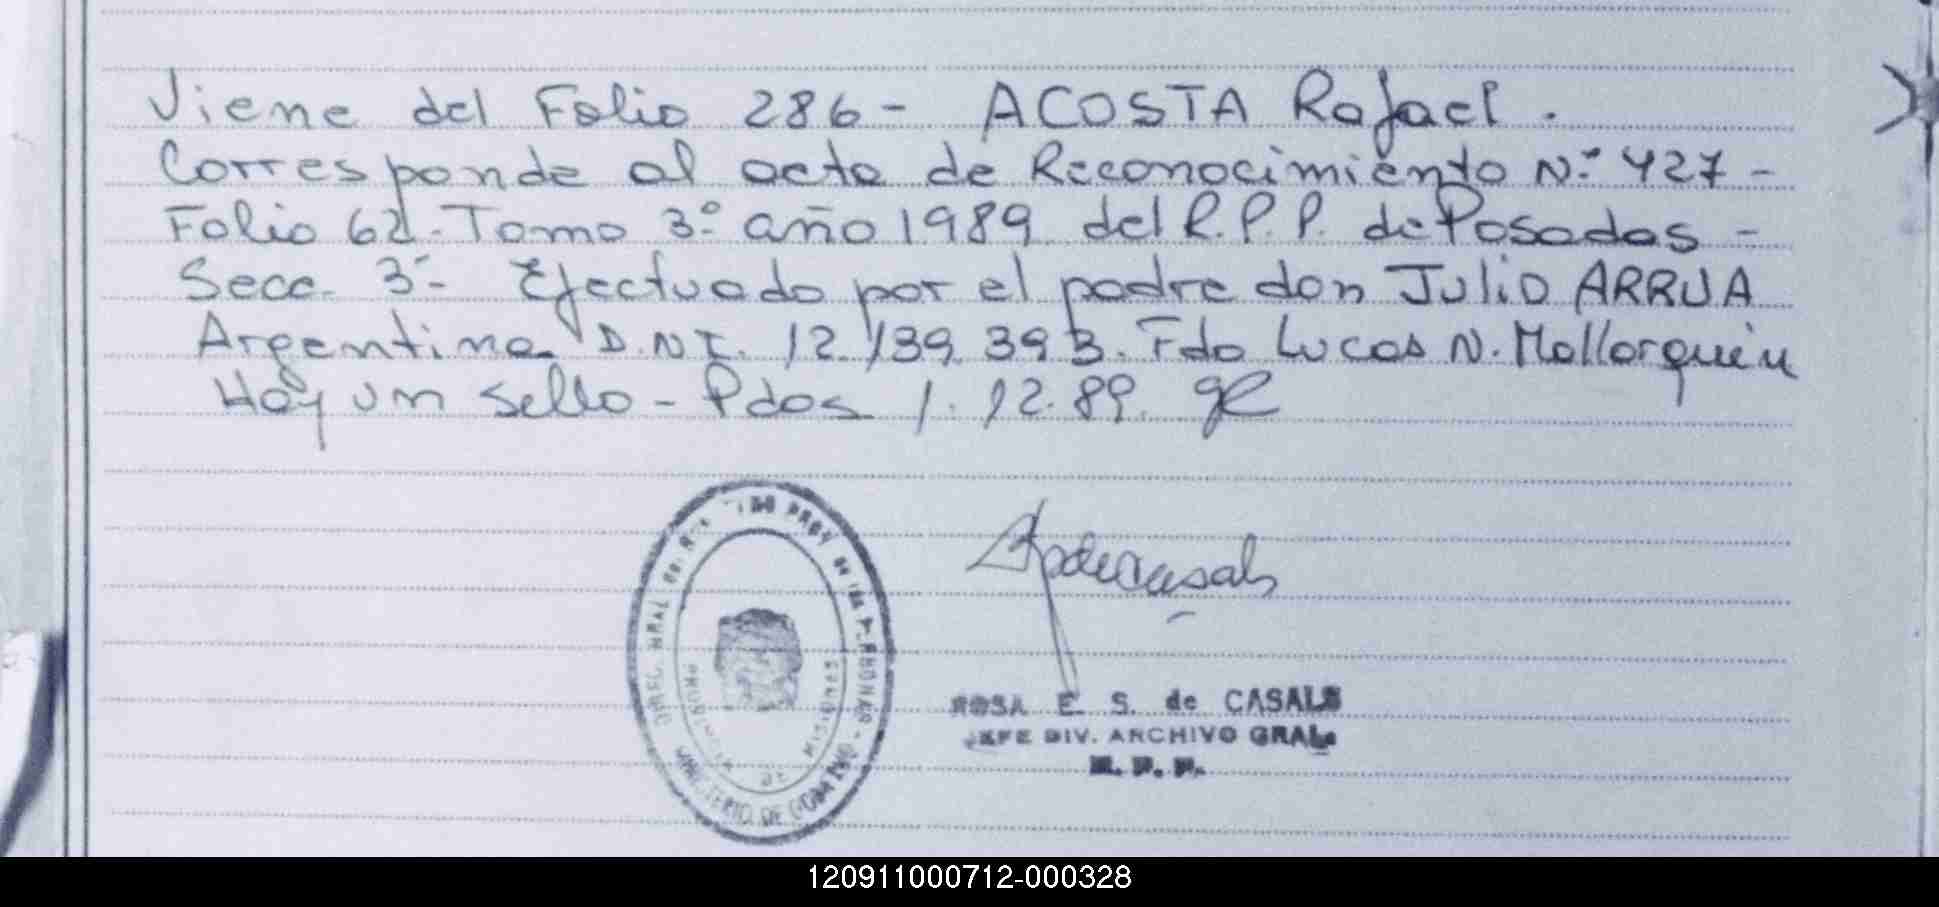 Viene del Folio 286- ACOSTA Rafael.
Corresponde al acta de Reconocimiento N.º 427-
Folio 62-Tomo 3º año 1989 del R.P.P. de Posadas-
Secc. 3ª- Efectuado por el padre don Julio ARRUA
Argentino D.N.I. 12.139.393. Fdo Lucas N. Mallorquin
Hay un sello- Pdas 1.12.89.
PROV. DE LAS PERSONAS - MINISTERIO DE GOBIERNO
PROVINCIA DE MISIONES
ROSA E. S. de CASALS
JEFE DIV. ARCHIVO GRAL.
R. P. P.
120911000712-000328